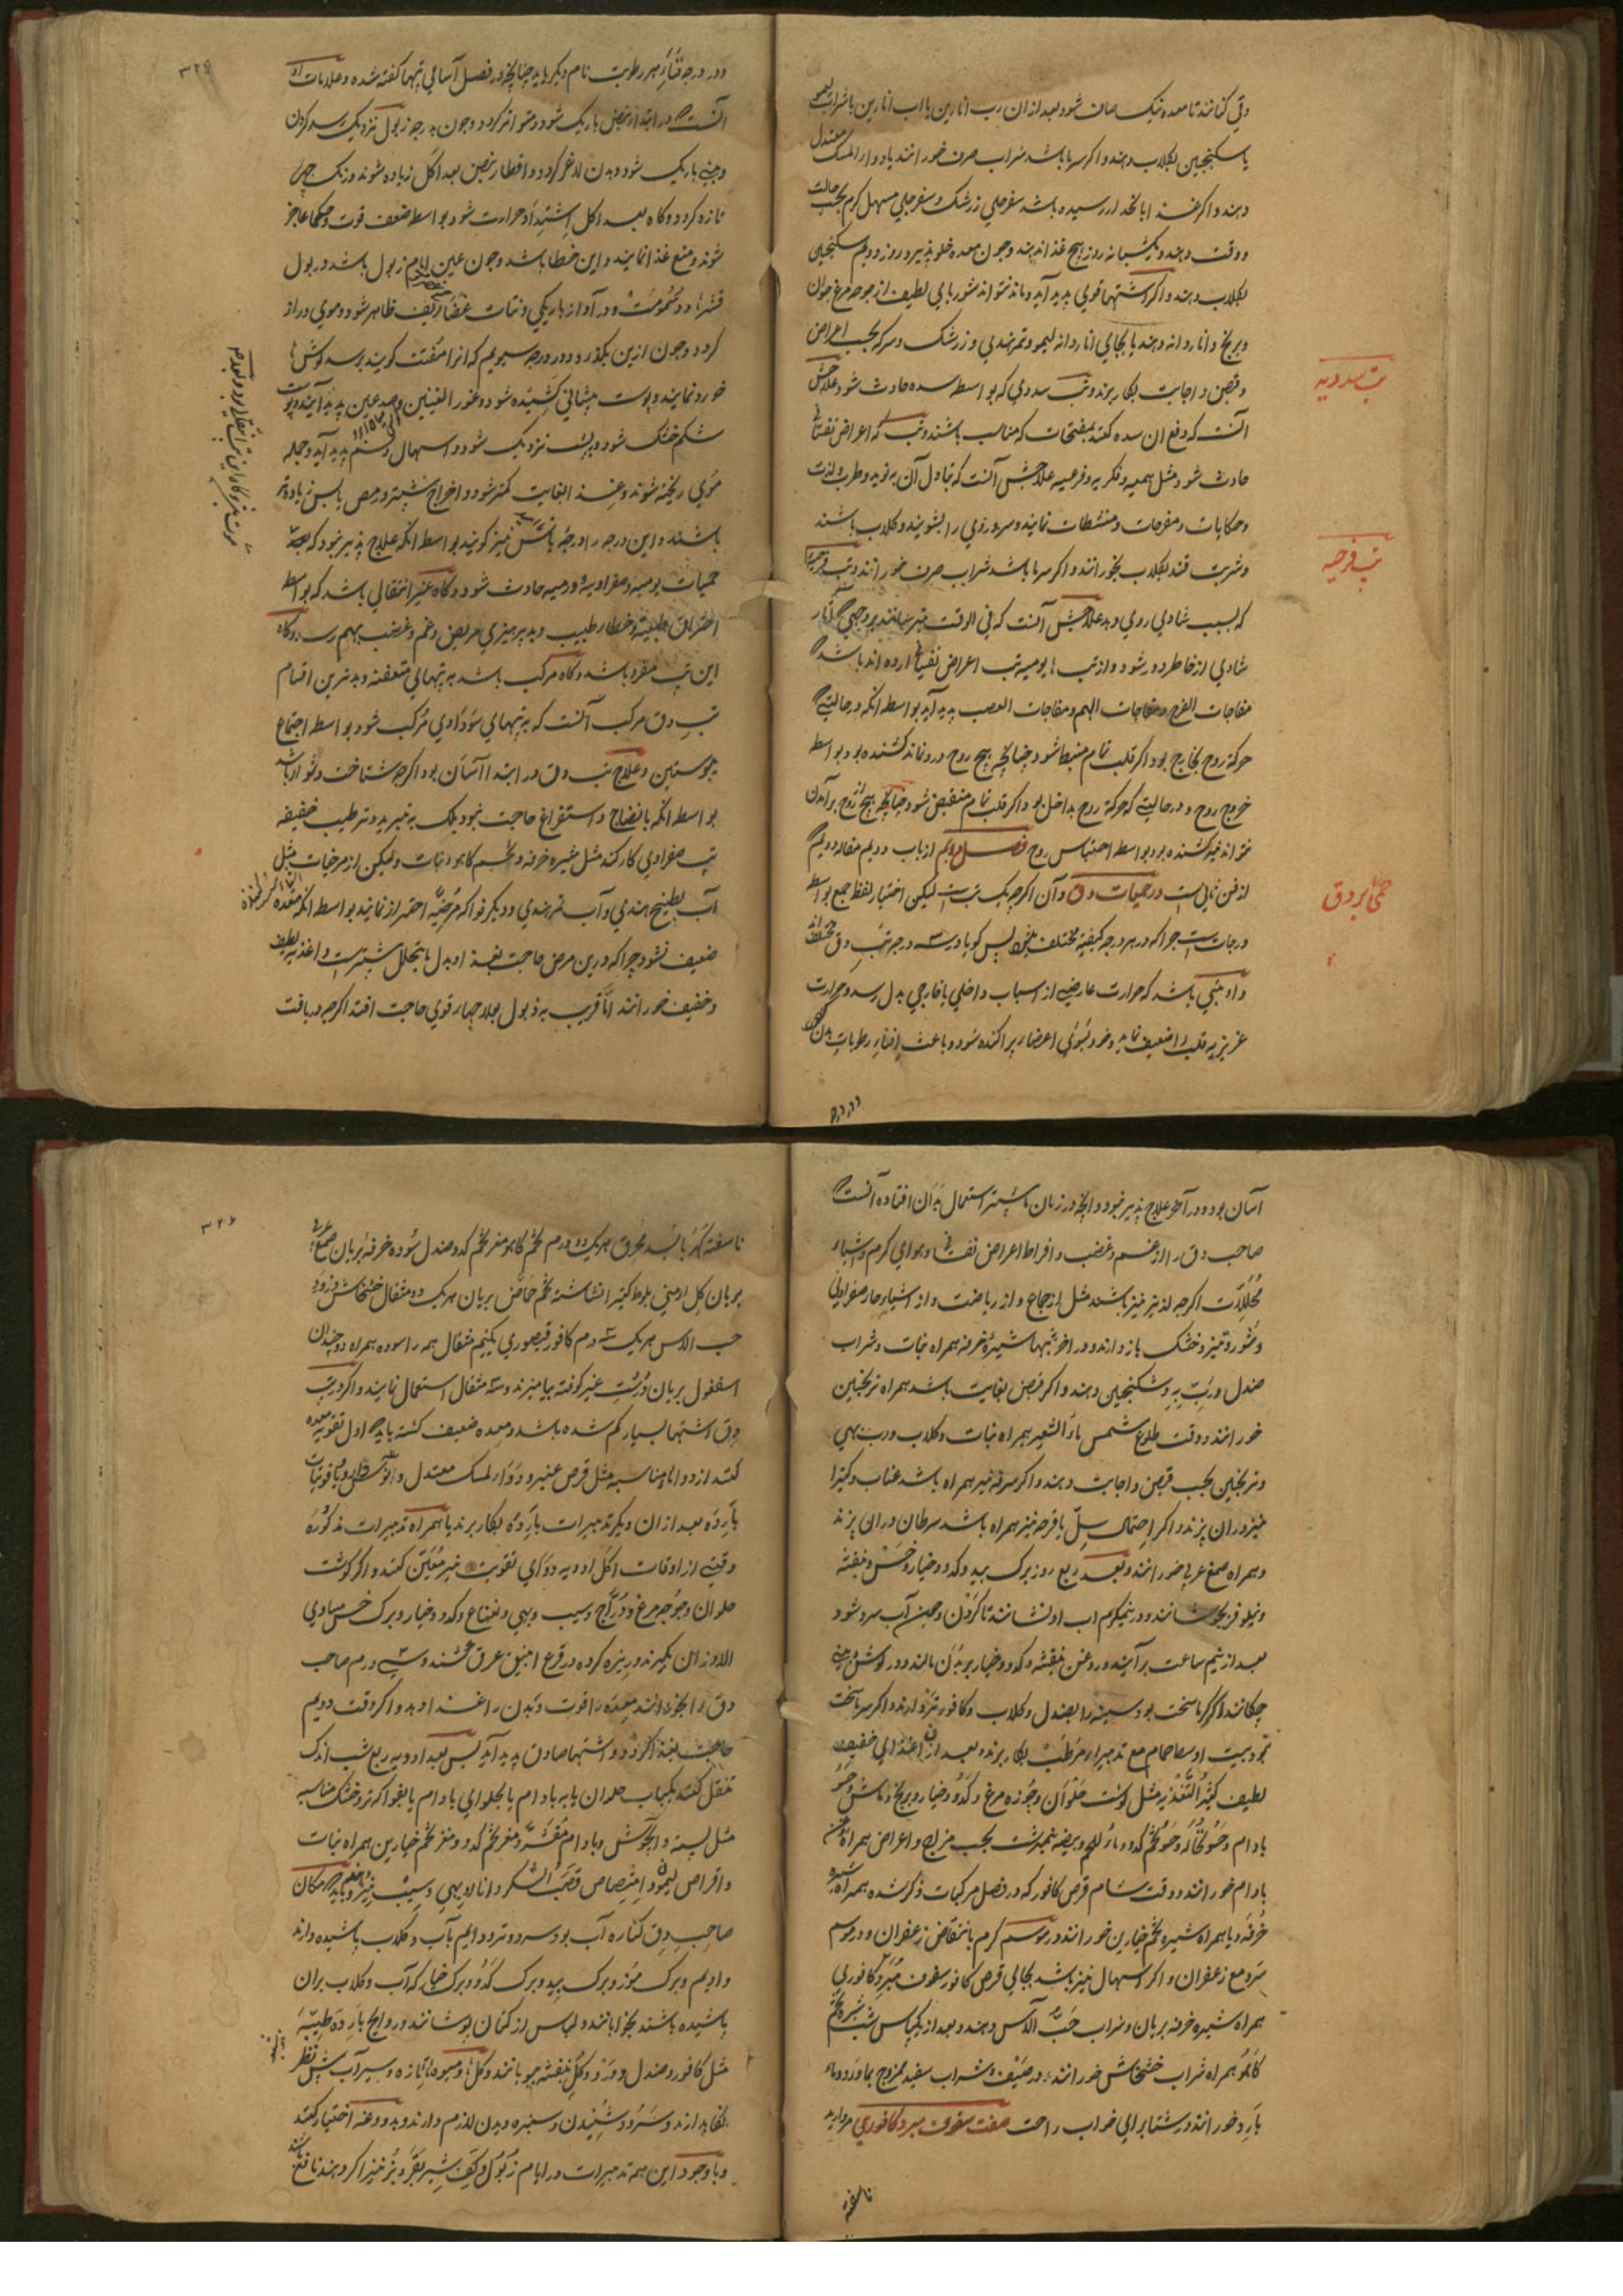 وقی کنانند تا معده نیک صاف شود بعد از ان رب انارین یا اب انارین با شراب لیمو
یا سکنجبین بگلاب دهند و اکر سرما باشد شراب صرف خورانند یا دوار المسک معتدل
دهند و اکر غذا بانحدار رسیده باشد سفرجلی زرشک و سفرجلی مسهل کرم بحسب حالت
و وقت دهند و یکشبانه روز هیچ غذا ندهند و چون معده خلو پذیرد روز دویم سکنجبین
بگلاب دهند و اکر اشتها قوی پدید آید و ماند نتواند شوربای لطیف از جوجه مرغ جوان
و برنج و اناردانه دهند یا بجای اناردانه لیمو و تمرهندی و زرشک و سرکه بحسب اعراض
و قبض و اجابت بکار برند و تب سددی که بواسطه سده حادث شود علاجش
تب سددیه
آنست که دفع ان سده کنند بمفتحات که مناسب باشند و تب که اعراض نفسانی
حادث شود مثل همیه و فکریه و فزعیه علاجش آنست که تبادل آن به نوید و طرب و لذت
و حکایات و مفرحات و منشطات نمایند و سر و روی را بشویند و کلاب باشند
و شربت قند بکلاب بخورانند و اکر سرما باشد شراب صرف خورانند و تب فرحیه
تب فرحیه
که بسبب شادی روی دهد علاجش آنست که فی الوقت خبر رسانند بر وجهی که آثار
شادی از خاطر دور شود و از تب ها یومیه تب اعراض نفسانی ارده اند باشد
مفاجات الفرح و مفاجات الهم و مفاجات الغضب پدید آید بواسطه انکه در حالتی که
حرکة روح بخارج بود اکر قلب تمام منبسط شود چنانچه هیچ روح درو نماند کشنده بود بواسطه
خروج روح و در حالیتی که حرکة روح بداخل بود اکر قلب تمام منقبض شود چنانچه هیچ روح برآمدن
نتواند نیز کشنده بود بواسطه احتباس روح فصل دویم از باب دویم مقاله دویم
از فن ثانیست در حمیات دق و آن اکرچه یک تب است لیکن اختیار لفظ جمع بواسطه
حمی دق
درجات است چرا که در هر درجه کیفیة مختلف بخش پس کویا در سه درجه تب دق مختلف اند
و او تبی باشد که حرارت عارضی از اسباب داخلی یا خارجی بدل رسد و حرارت
غریزیه قلب را ضعیف نماید و خود بسوی اعضا پراکنده شود و باعث افناء رطوبات بدن شود
و در درجه
و در درجه فناء هر رطوبت نام دیکر یابد چنانچه در فصل آسامی تبها کفته شده و علامات
آنست که در ابتدا نبض باریک شود و متواتر کردد و چون بدرجه زبول نزدیک رسد کردن
و بینی باریک شود و بدن لاغر کردد و اقطار نبض بعد اکل زیاده شوند و رنک چهره
تازه کردد و کاه بعد اکل اشتداد حرارت شود بواسطه ضعف قوت و حکما عاجز
شوند و منع غذا نمایند و این خطا باشد و چون عین ایام زبول باشد در بول
قشرها و دسومت و در آواز باریکی و نتات غضاریف ظاهر شود و موی دراز
کردد و چون ازین بکذرد و در درجه سیویم که انرا مفتت کویند برسد کوش ها
خورد نمایند و پوست پیشانی کشیده شود و غور العینین و صدغین پدید آیند و پوست
شکم خشک شود و بپشت نزدیک شود و اسهال و ورم پدید آید و جمله
موی ریخته شوند و غذا بغایت کمتر شود و اخراج بیشتر و مص یابس زیاده تر
باشند و این درجه را درجه یاس نیز کویند بواسطه انکه علاج پذیر نبود که بعد
حمیات یومیه و صفراویه و ورمیه حادث شود و کاه غیر انتقالی باشد که بواسطه
احتراق طبیعیة و خطاء طبیب و بدپرهیزی مریض و غم و غضب بهم رسد و کاه
این تب مفرد باشد و کاه مرکب باشد به تبهای متعفنه و بدترین اقسام
تب دق مرکب آنست که به تبهای سوداوی مرکب شود بواسطه اجتماع
یبوستین و علاج تب دق در ابتدا آسان بود اکرچه شناخت دشوار باشد
بواسطه انکه بانضاج و استفراغ حاجت نبود بلکه به تبرید و ترطیب خفیفه
تب صفراوی کار کند مثل شیره خرفه و تخم کاهو و نبات ولیکن از مرخیات مثل
آب بطیخ هندی و آب تمرهندی و دیکر فواکه مرخیه احتراز نمایند بواسطه انکه معده
ضعیف نشود چرا که درین مرض حاجت بغذا و بدل ما یتحلل بیشتر است و اغذیه لطیف
و خفیف خورانند اما قریب به ذبول بعلاجهای قوی حاجت افتد اکرچه دریافت
آسان بود و در آخر علاج پذیر نبود و انچه در زمان ما بیشتر استعمال بدان افتاده آنست که
صاحب دق را از غم و غضب و افراط اعراض نفسانی و هوای کرم و اشیاء
محللات اکرچه لذیذ نیز باشند مثل از جماع و از ریاضت و از اشیاء حار صفراوی
و شور و تیز و خشک باز دارند و در اخر شبها شیره خرفه همراه نبات و شراب
صندل و رب به و سکنجبین دهند و اکر قبض بغایت باشد همراه ترنجبین
خورانند و وقت طلوع شمس ماء الشعیر همراه نبات و کلاب و رب بهی
و ترنجبین بحسب قبض و اجابت دهند و اکر سرفه نیز همراه باشد عناب و کتیرا
نیز دران پزند و اکر احتمال سل یا قرحه نیز همراه باشد سرطان دران پزند
و همراه صمغ عربی خورانند و بعد ربع روز برک بید و کدو و خیار و خس و بنفشه
و نیلوفر بجوشانند و در نیمکرم اب او نشانند تا کردن و همین آب سرد شود
بعد از نیم ساعت برآیند و روغن بنفشه و کدو و خیار بر بدن مالند و در کوش و بینی
چکانند و اکر کرما سخت بود سینه را بصندل و کلاب و کافور تر دارند و اکر سرما سخت
نبود بیت اوسط حمام مع تدبیرات مرطبه بکار برند و بعد از ان اغذای خفیف
لطیف کثیر التغذیه مثل کوشت حلوان و جوزه مرغ و کدو و خیار و برنج و ماش و حسو
بادام و حسو نخاله و حسو تخم کدو و ماء اللحم و بیضه نیمبرشت بحسب مزاج و اعراض همراه روغن
بادام خورانند و وقت شام قرص کافور که در فصل مرکبات ذکر شده همراه شیره
خرفه و یا همراه شیره تخم خیارین خورانند در موسم کرم بانتقاض زعفران و در موسم
سرد مع زعفران و اکر اسهال نیز باشد بجای قرص کافور سفوف مبرد کافوری
همراه شیره خرفه بریان و شراب حب الآس دهند و بعد از یکپاس شب شیره تخم
کاهو همراه شراب خشخاش خورانند و در صیف شراب سفید ممزوج بماء ورد و ماء
بارد خورانند و در شتا برای خواب راحت صفت سفوف مبرد کافوری مروارید
ناسفته
ناسفته کهربا بسد محرق هریک دو درم تخم کاهو مغز تخم کدو صندل سوده خرفه بریان صمغ عربی
بریان کل ارمنی بلوط کتیرا نشاسته تخم حماض بریان هریک دو مثقال خشخاش زرورد
حب الاس هریک سه درم کافور قیصوری یکنیم مثقال همه را سوده همراه دوچندان
اسفغول بریان درست غیر کوفته بیامیزند و سه مثقال استعمال نمایند و اکر در تب
دق اشتها بسیار کم شده باشد و معده ضعیف کشته باید که اول تقویه معده
کنند از دواء مناسبه مثل قرص عنبر و دواء المسک معتدل و انوشدارو و یاقوتیات
بارده بعد از ان دیکر تدبیرات بارده بکار برند یا همراه تدبیرات مذکوره
وقتی از اوقات اکل ادویه دوای تقویت نیز معین کنند و اکر کوشت
حلوان و جوجه مرغ و دراج و سیب و بهی و نعناع و کدو و خیار و برک خس مساوی
الاوزان بکیرند و ریزه کرده در قرع انبیق عرق کشند و سی درم صاحب
دق را بخورانند معده را قوت و بدن را غذا دهد و اکر وقت دویم
حاجت بغذا کردد و اشتها صادق پدید آید پس بعد ادویه ربع شب اندک
تنقل کنند بکباب حلوان یا به بادام یا بحلوای بادام یا بفواکه تر و خشک مناسبه
مثل پسته و آبجوش و بادام مقشر و مغز تخم کدو و مغز تخم خیارین همراه نبات
و اقراص لیمو و امتصاص قصب الشکر و انار و بهی و سیب نیز و باید که مکان
صاحب دق کناره آب بود و سرد و تر و دایم بآب و کلاب پاشیده دارند
و ادیم و برک موز و برک بید و برک کدو و برک خیار که آب و کلاب بران
پاشیده باشند بخوابانند و لباس از کتان پوشانند و روایح بارده طیبه
مثل کافور و صندل و ورد و کل بنفشه ببویانند و کلها و میوهای تازه و سیر آب پیش نظر
نکاه دارند و سرود شنیدن و سبزه دیدن لازم دارند و بدو وغیره اختیار کنند
و با وجود این همه تدبیرات در ایام زبول و کیف شیر بقر و بز نیز اکر دهند نافع باشد